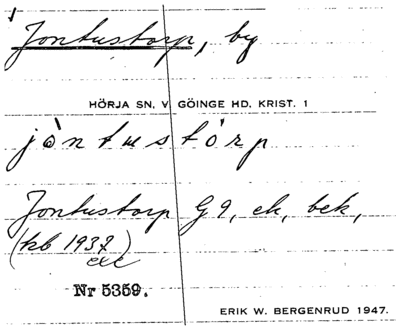 Jontustorp, by
HÖRJA SN, V GÖINGE HD. KRIST. 1
jòntustórp
Jontustorp G9, ek, bek,
(kb 1937)
exc
Nr 5359.
ERIK W. BERGENRUD 1947.